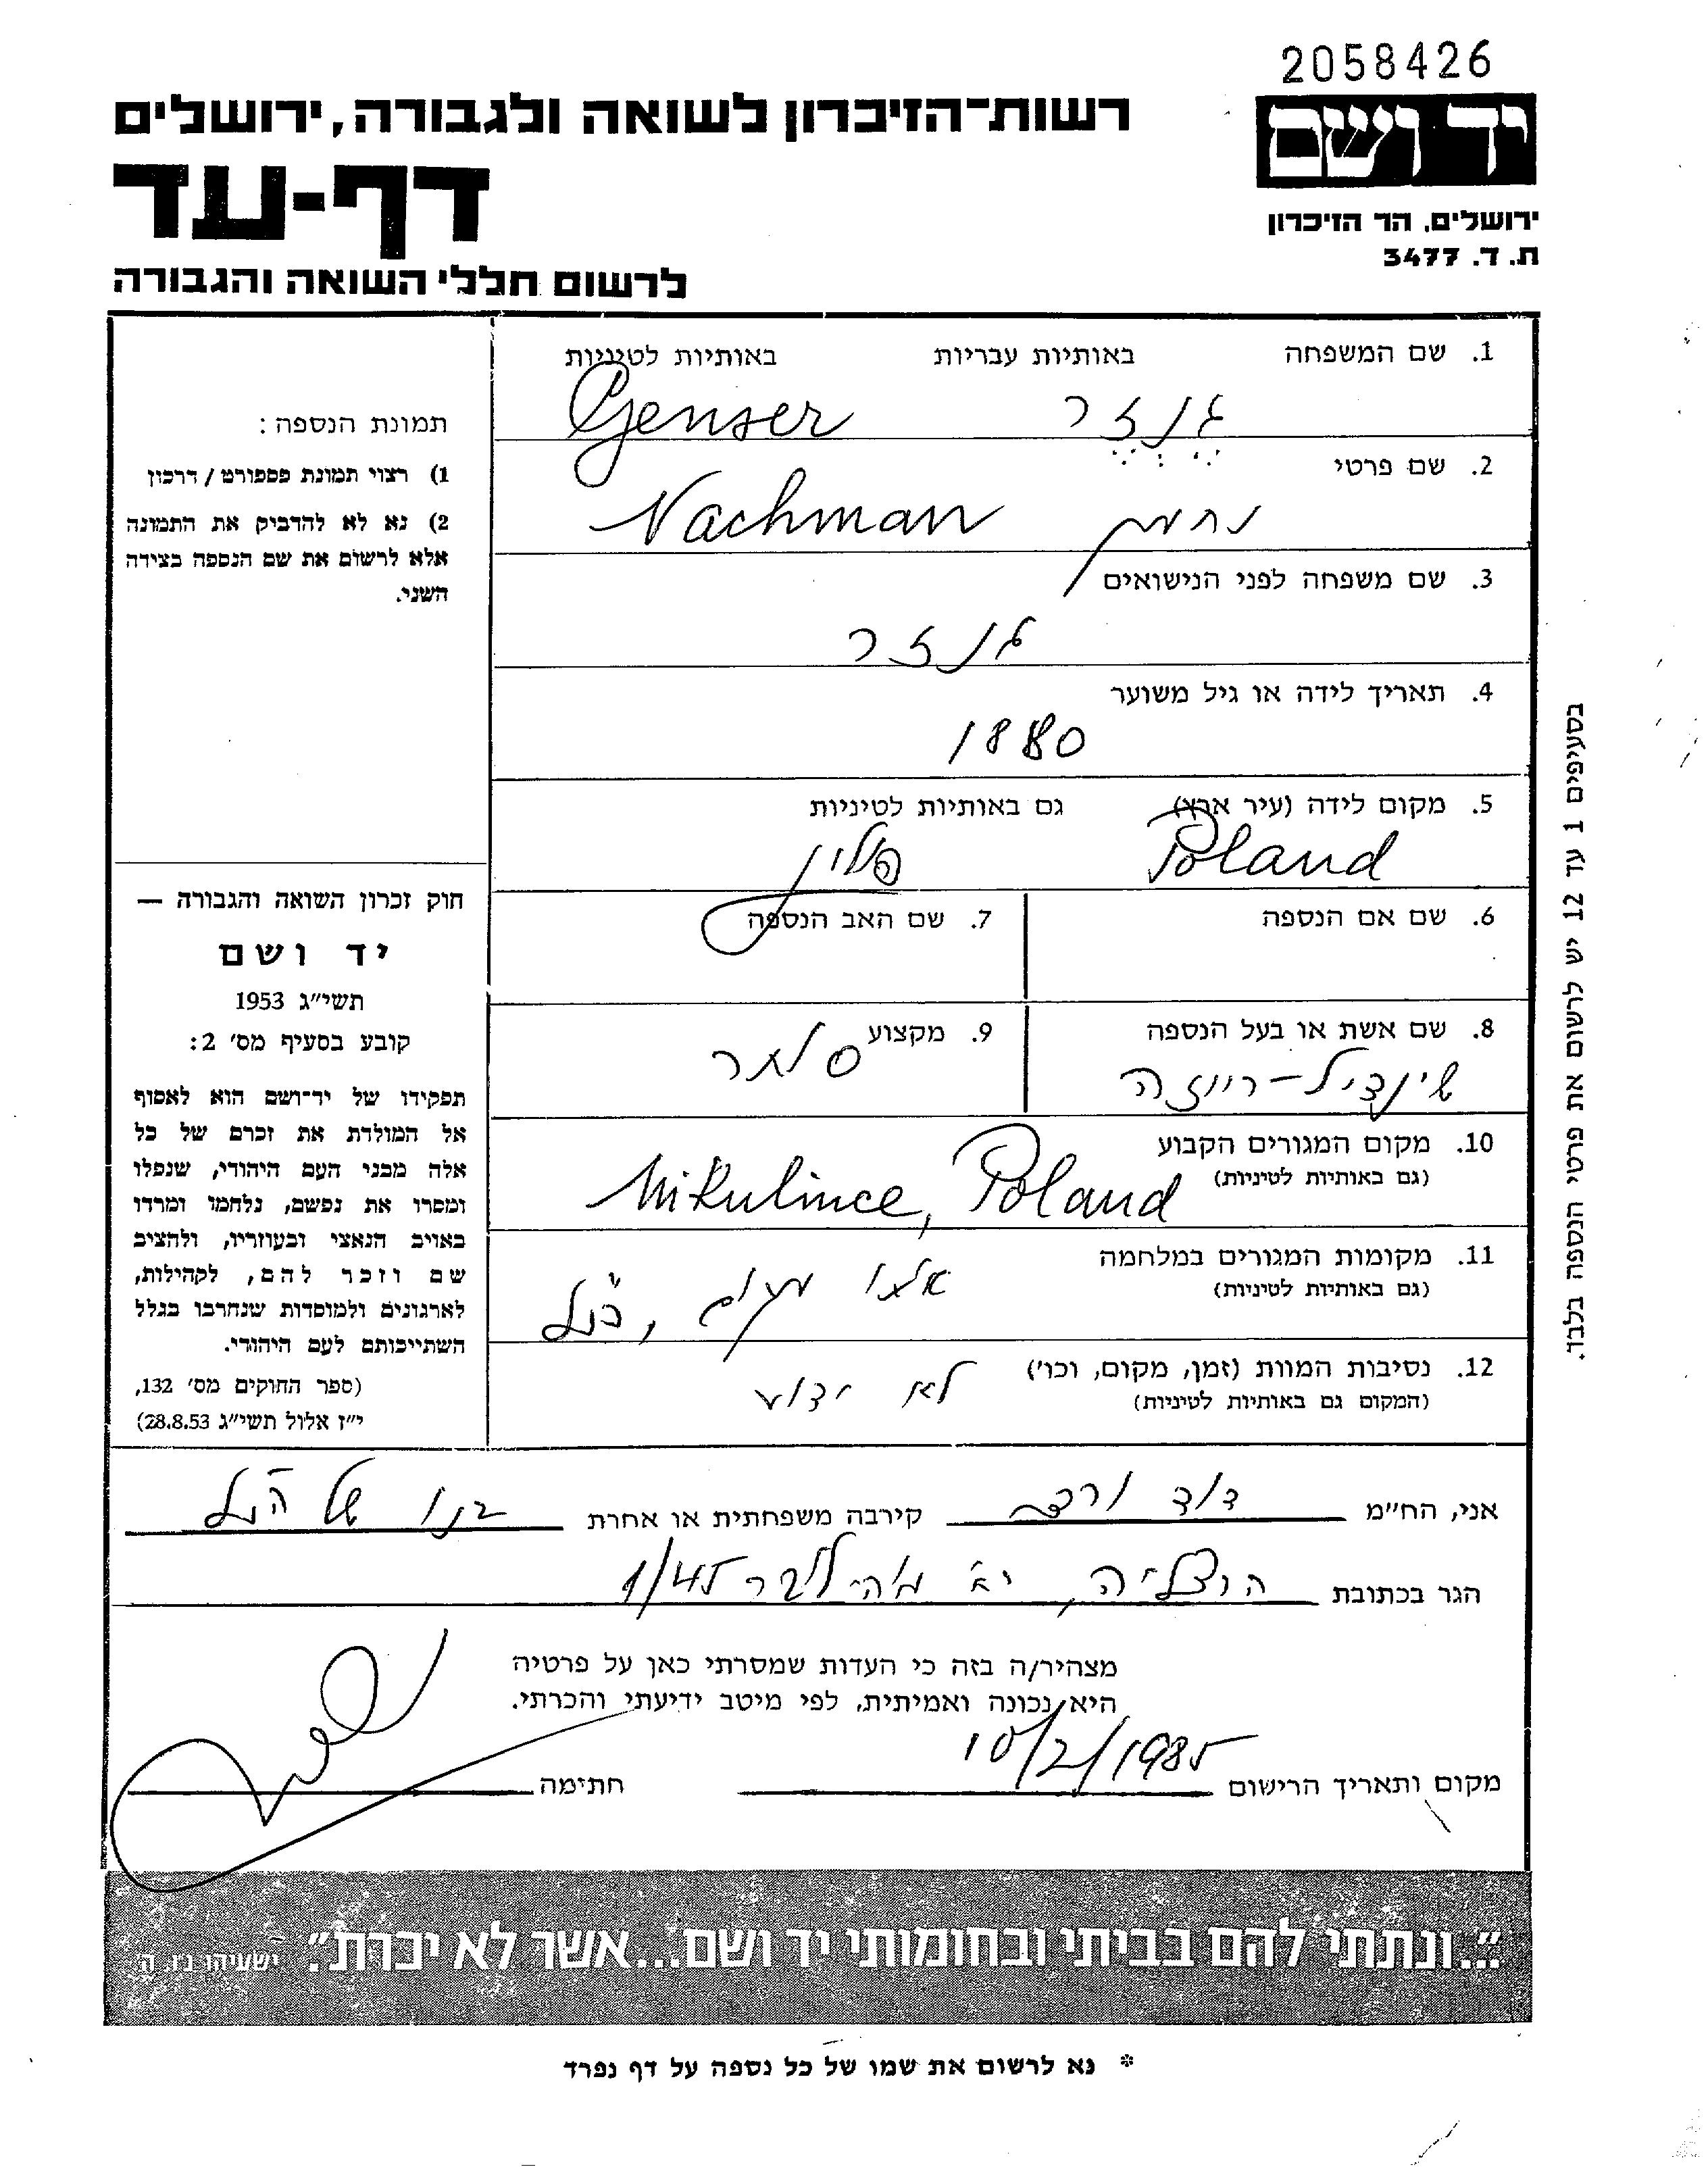 2058426
יד ושם
ירושלים, הר הזיכרון
ת. ד. 3477
רשות־הזיכרון לשואה ולגבורה, ירושלים
דף-עד
לרשום חללי השואה והגבורה
1. שם המשפחה באותיות עבריות באותיות לטיניות
גנזר Genser
2. שם פרטי
נחמן Nachman
3. שם משפחה לפני הנישואים
גנזר
4. תאריך לידה או גיל משוער
1880
5. מקום לידה (עיר ארץ) גם באותיות לטיניות
Poland פולין
6. שם אם הנספה 7. שם האב הנספה
8. שם אשת או בעל הנספה 9. מקצוע
שינדיל-רייזה סוחר
10. מקום המגורים הקבוע
(גם באותיות לטיניות)
Mikulince, Poland
11. מקומות המגורים במלחמה
(גם באותיות לטיניות)
אותו מקום, כנ"ל
12. נסיבות המוות (זמן, מקום, וכו')
(המקום גם באותיות לטיניות)
לא ידוע
תמונת הנספה:
1) רצוי תמונת פספורט / דרכון
2) נא לא להדביק את התמונה
אלא לרשום את שם הנספה בצידה
השני.
חוק זכרון השואה והגבורה —
יד ושם
תשי״ג 1953
קובע בסעיף מס׳ 2:
תפקידו של יד־ושם הוא לאסוף
אל המולדת את זכרם של כל
אלה מבני העם היהודי, שנפלו
ומסרו את נפשם, נלחמו ומרדו
באויב הנאצי ובעוזריו, ולהציב
שם וזכר להם, לקהילות,
לארגונים ולמוסדות שנחרבו בגלל
השתייכותם לעם היהודי.
(ספר החוקים מס׳ 132,
י״ז אלול תשי״ג 28.8.53)
בסעיפים 1 עד 12 יש לרשום את פרטי הנספה בלבד.
אני, הח״מ דוד קירבה משפחתית או אחרת בנו של הנ"ל
הגר בכתובת הרצליה, 45/1
מצהיר/ה בזה כי העדות שמסרתי כאן על פרטיה
היא נכונה ואמיתית, לפי מיטב ידיעתי והכרתי.
מקום ותאריך הרישום 10/2/1985 חתימה
״...ונתתי להם בביתי ובחומותי יד ושם...אשר לא יכרת״. ישעיהו נ״ו, ה׳
* נא לרשום את שמו של כל נספה על דף נפרד